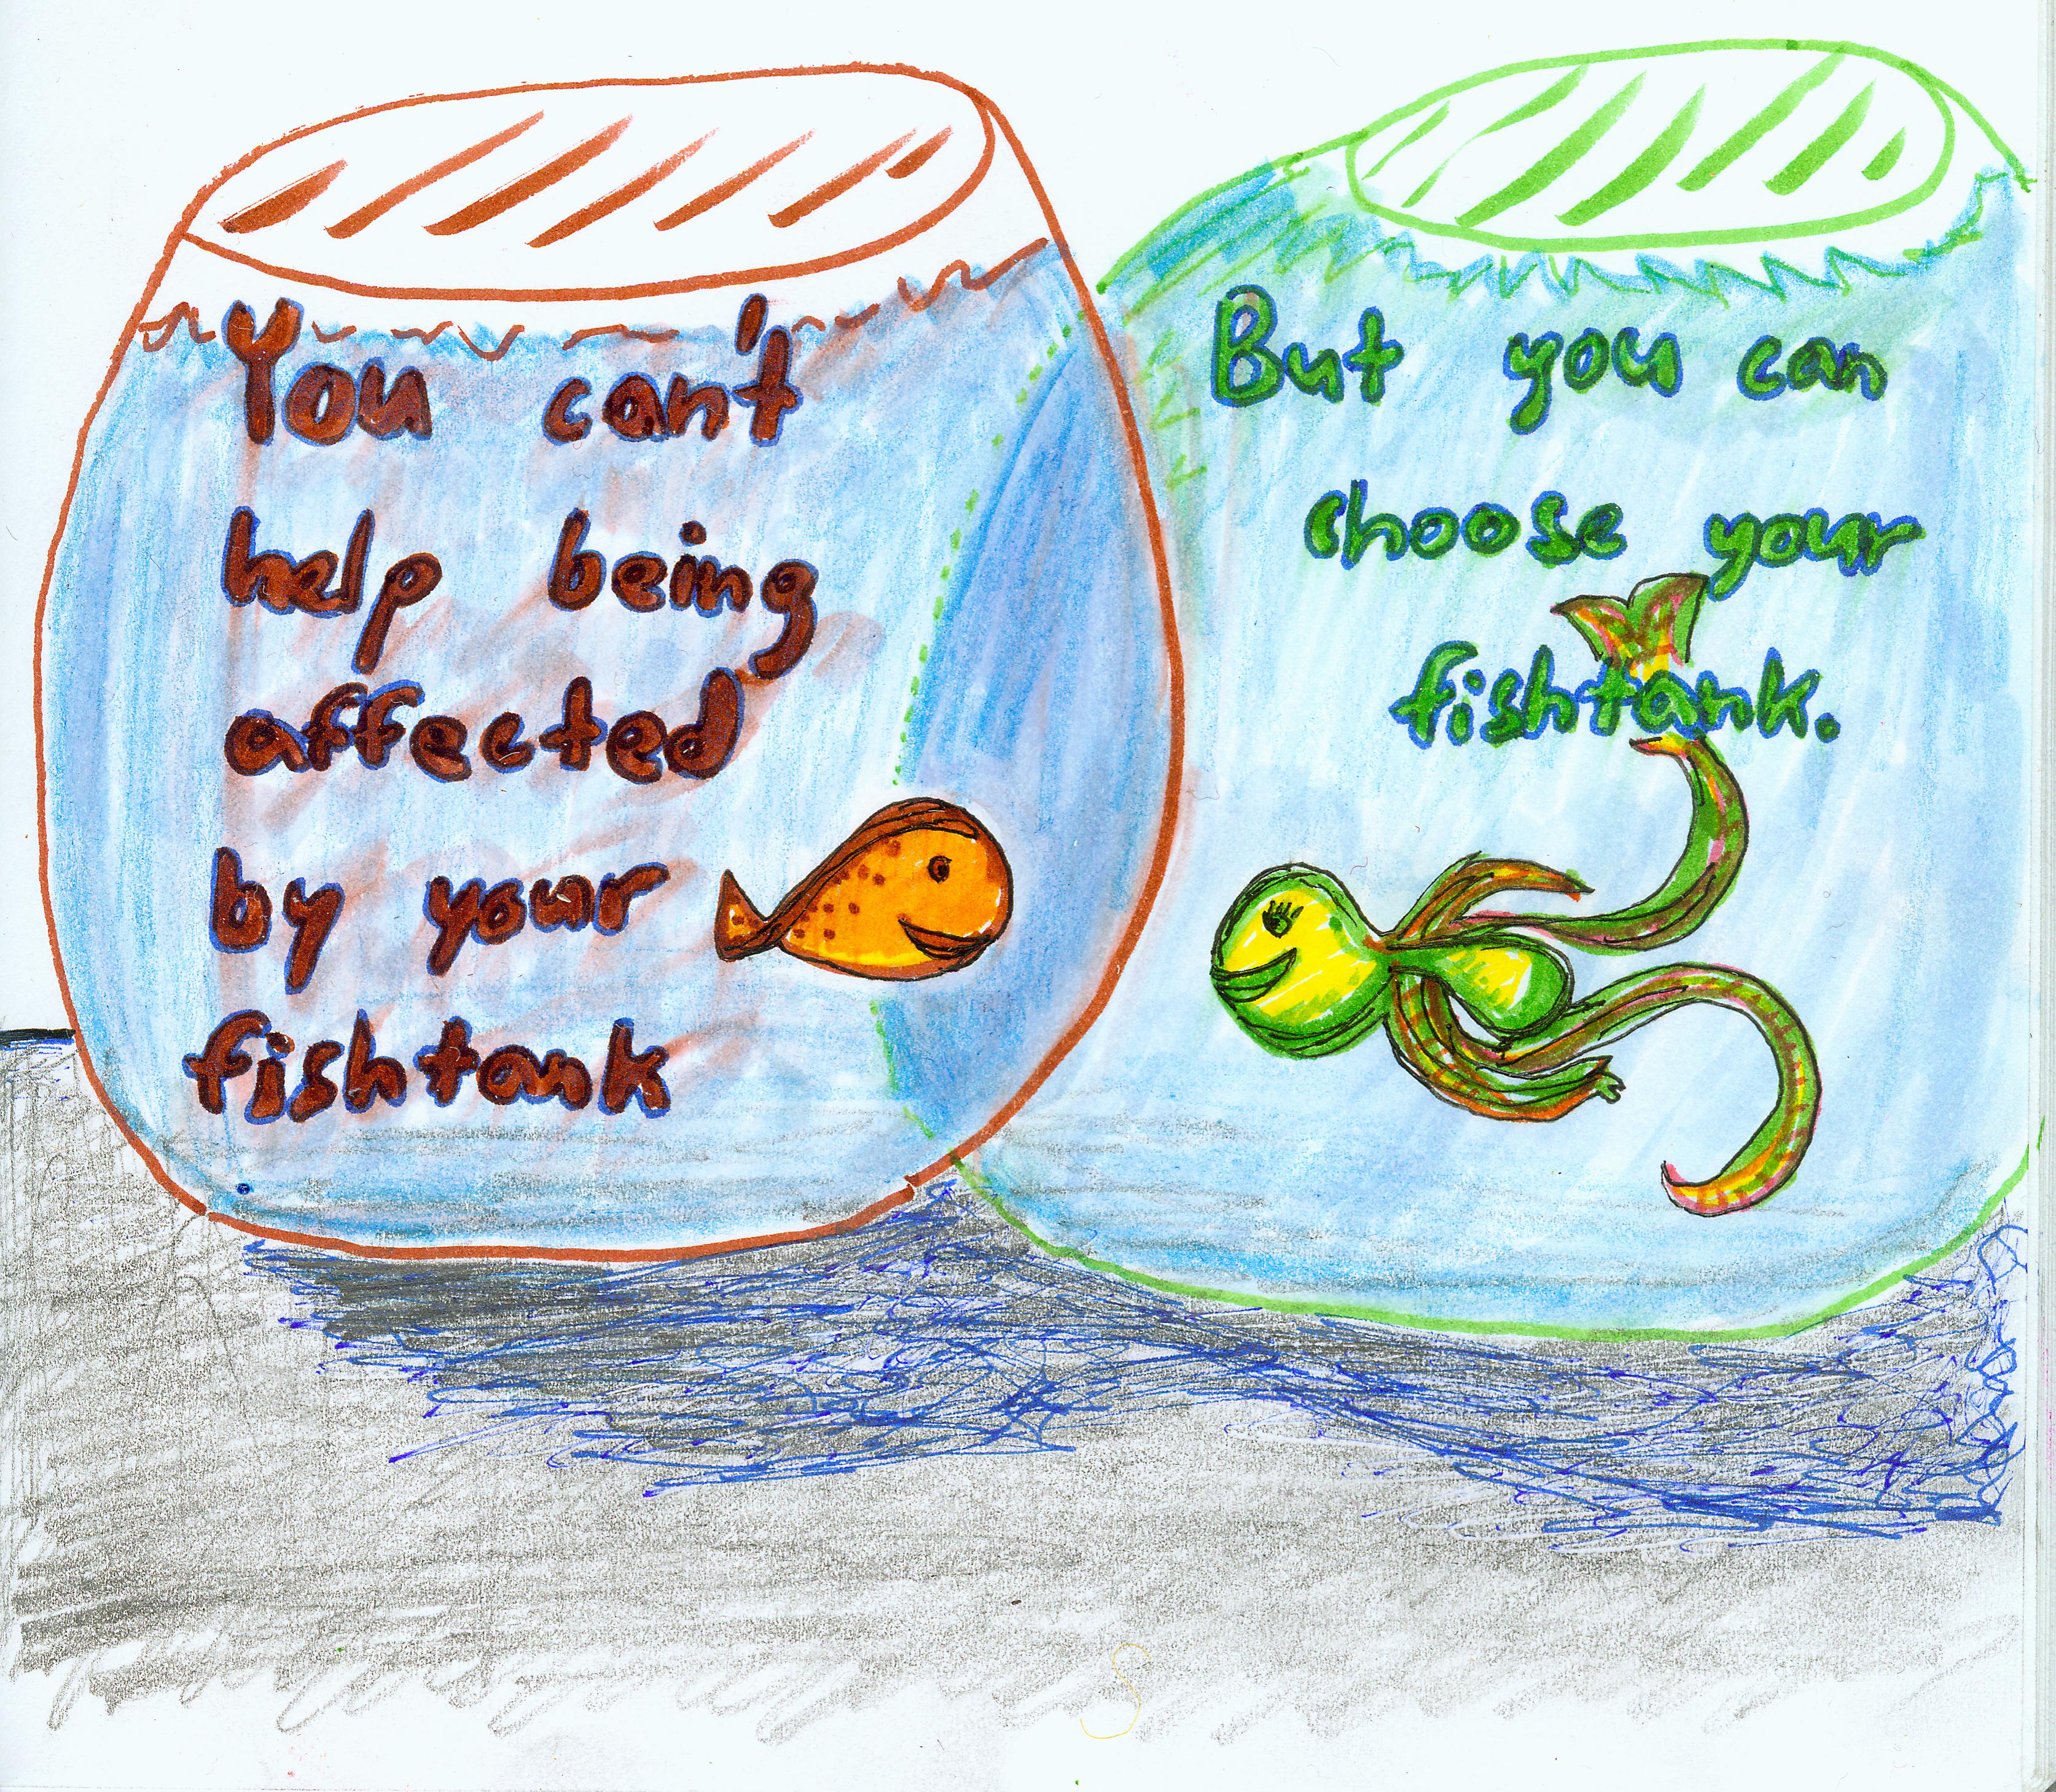 You can't
help being
affected
by your
fishtank
But you can
choose your
fishtank.